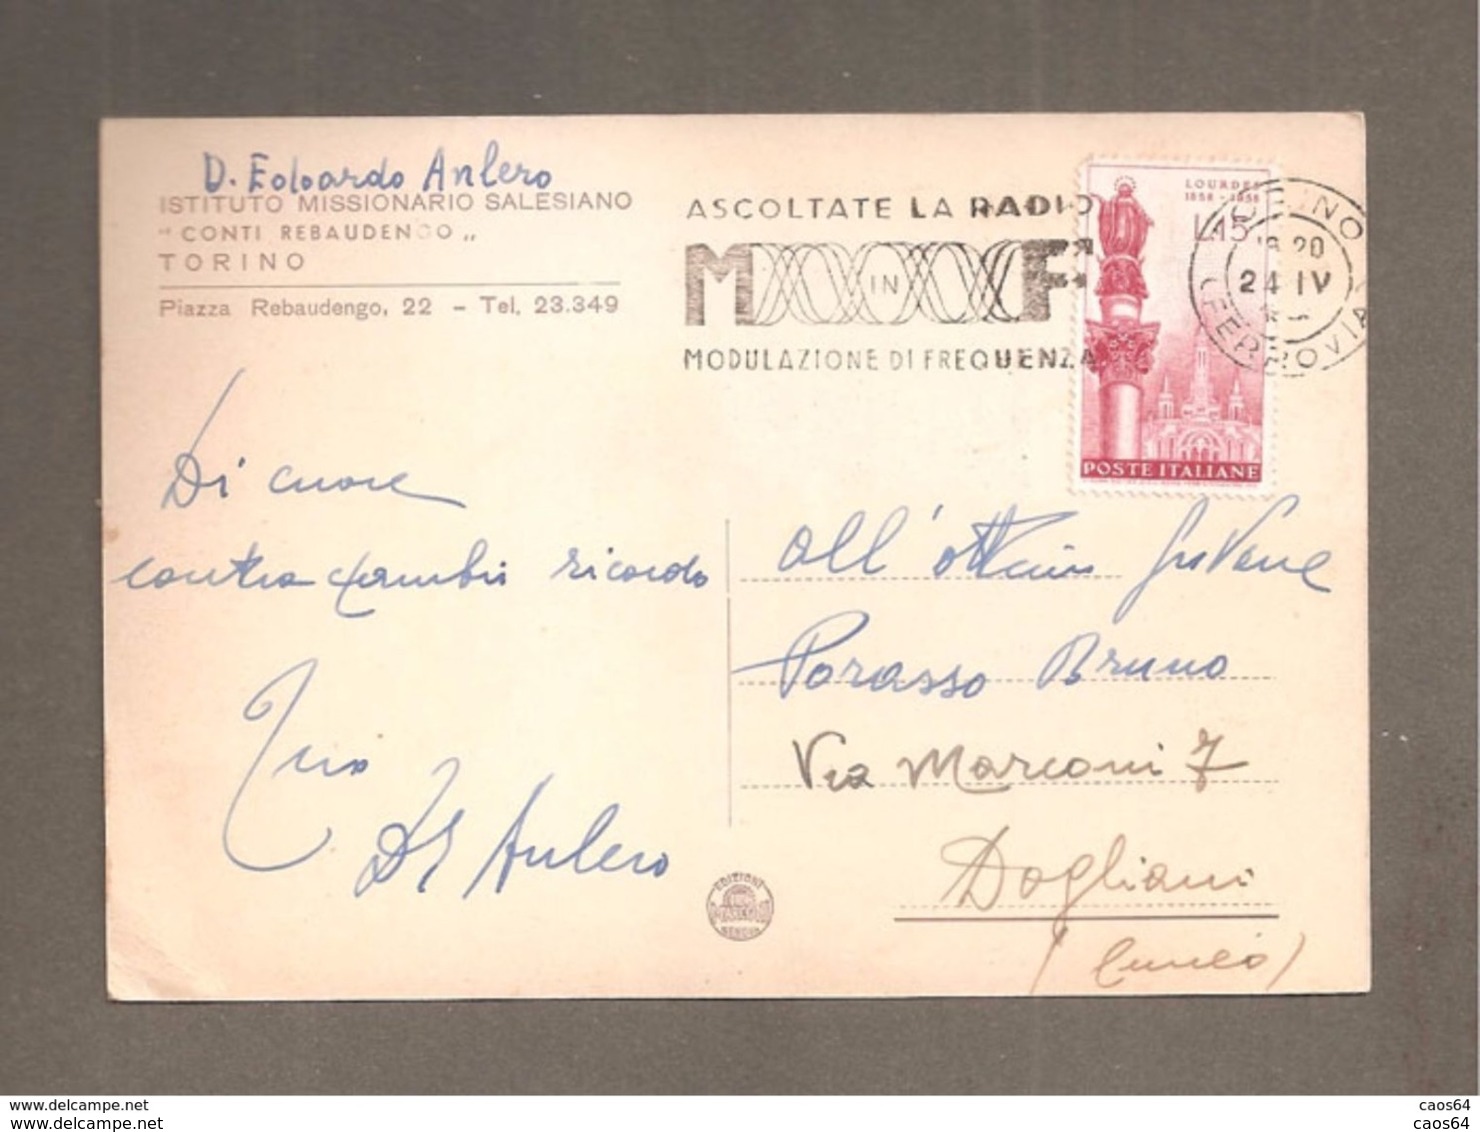 D. Edoardo Anlero
ISTITUTO MISSIONARIO SALESIANO
"CONTI REBAUDENGO„
TORINO
Piazza Rebaudengo, 22 - Tel. 23.349
ASCOLTATE LA RADIO
M IN F
MODULAZIONE DI FREQUENZA
LOURDES
1858 - 1958
L.15
POSTE ITALIANE
TORINO
18 20
24 IV
FERROVIA
Di cuore
contraccambio ricordo
Anlero
All'ottimo giovane
Porasso Bruno
Via Marconi 7
Dogliani
(Cuneo)
EDIZIONI
GENOVA
caos64
caos64
caos64
caos64